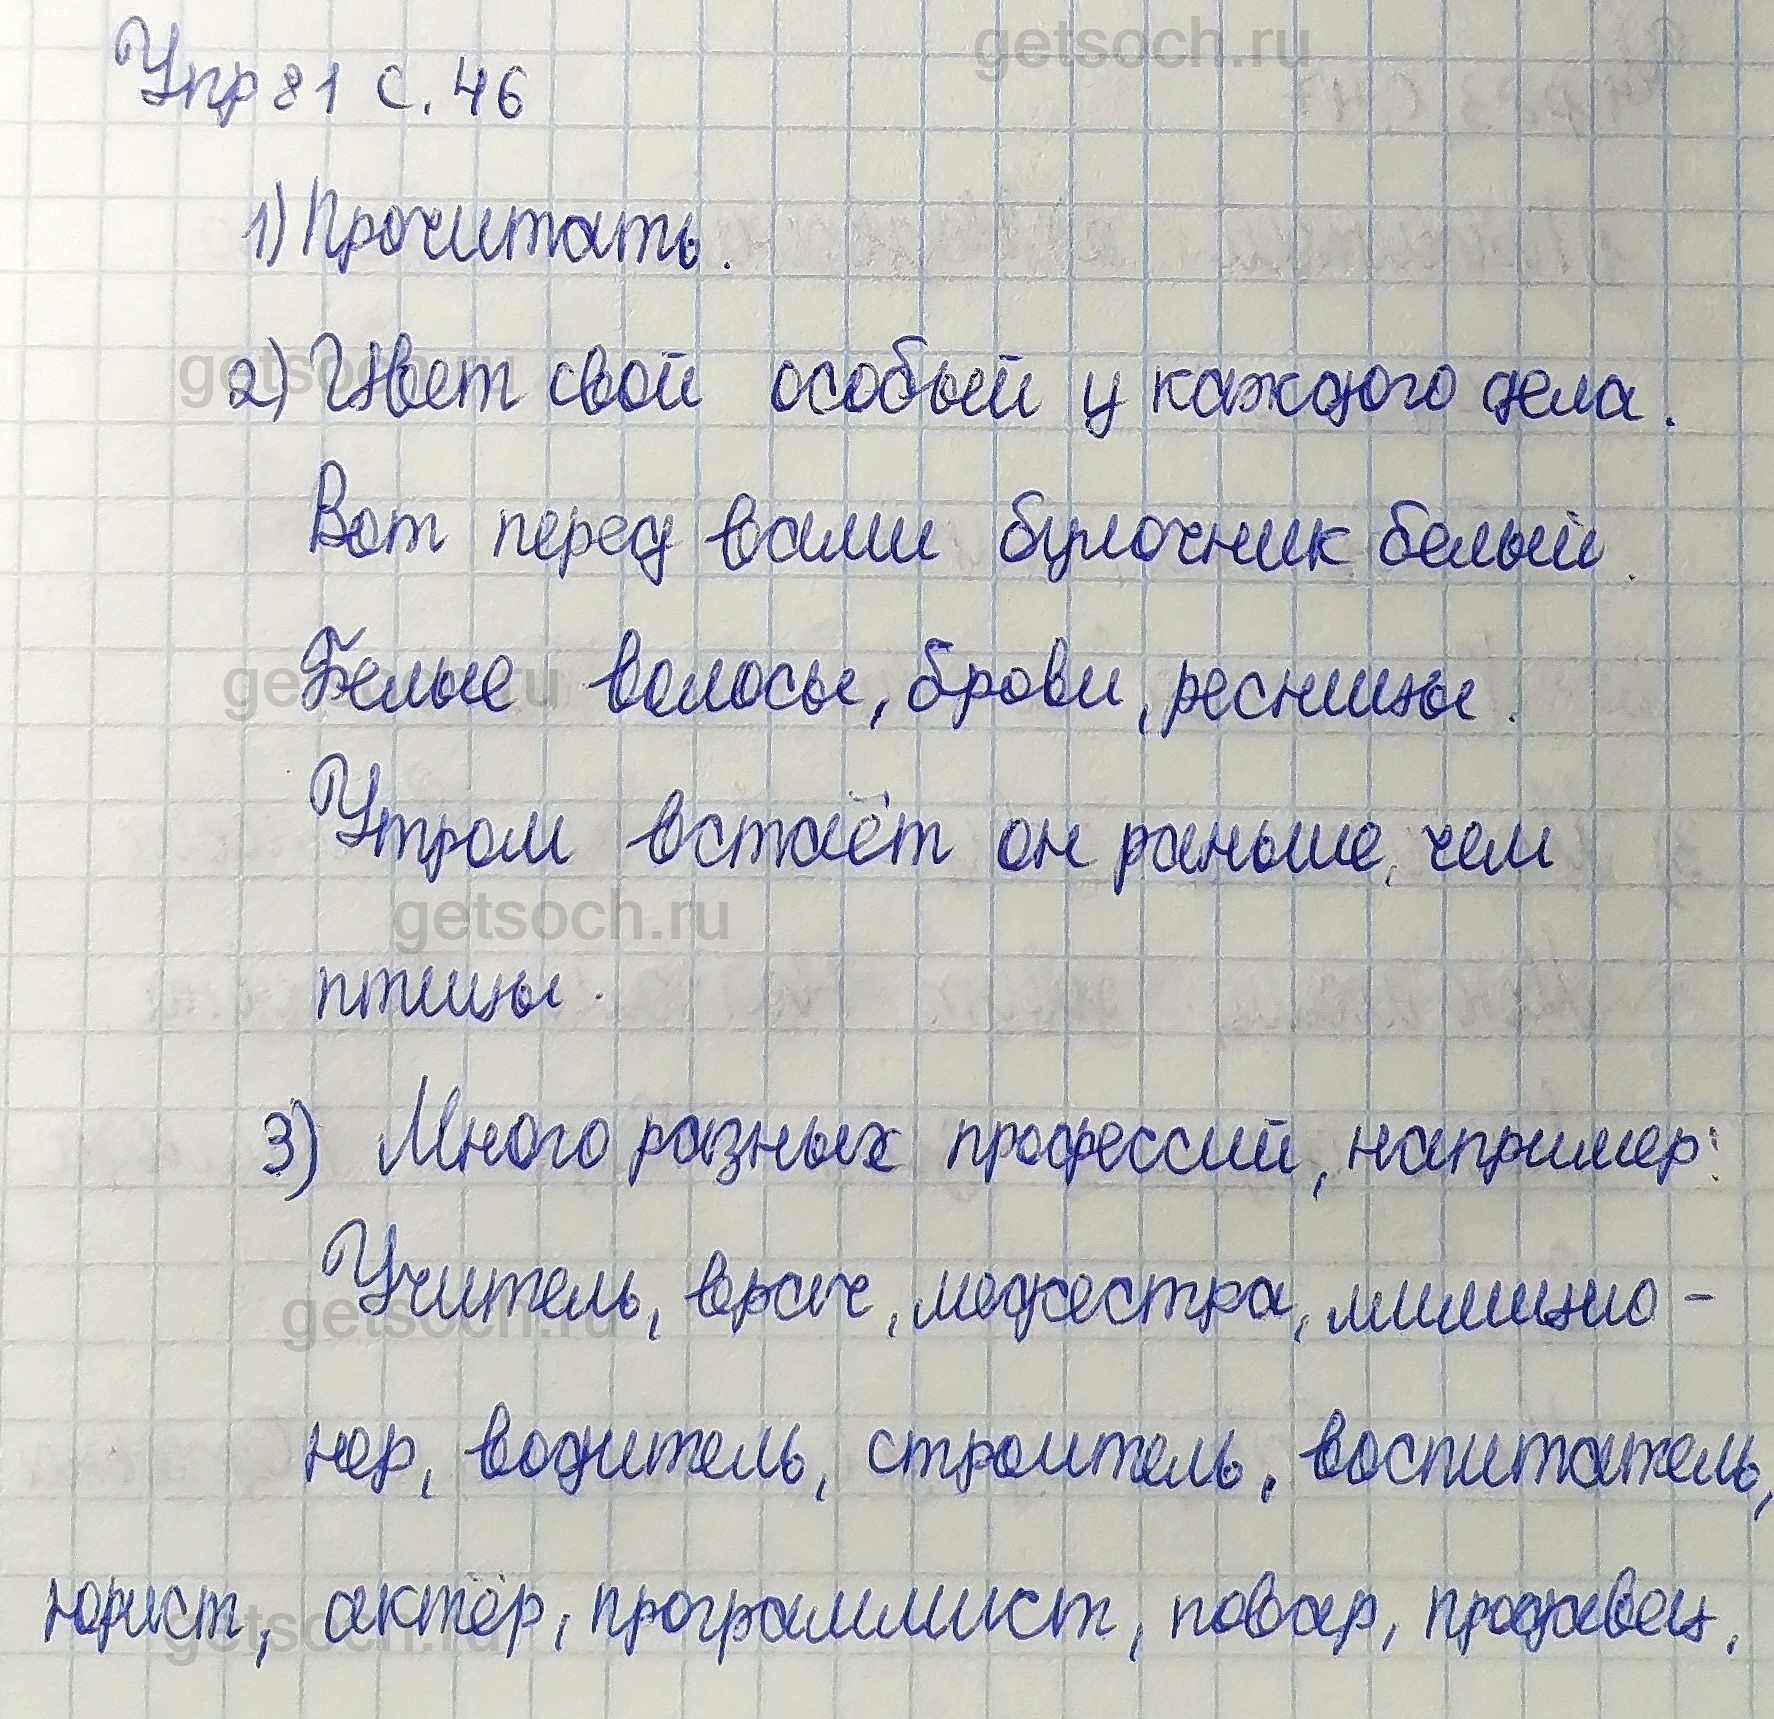 getsoch.ru
Упр 81 с. 46
1) Прочитать.
2) Цвет свой особый у каждого дела.
getsoch.ru
Вот перед вами булочник белый.
Белые волосы, брови, ресницы.
getsoch.ru
Утром встаёт он раньше, чем
getsoch.ru
птицы.
3) Много разных профессий, например:
Учитель, врач, медсестра, милицио-
getsoch.ru
нер, водитель, строитель, воспитатель,
юрист, актёр, программист, повар, продавец.
getsoch.ru